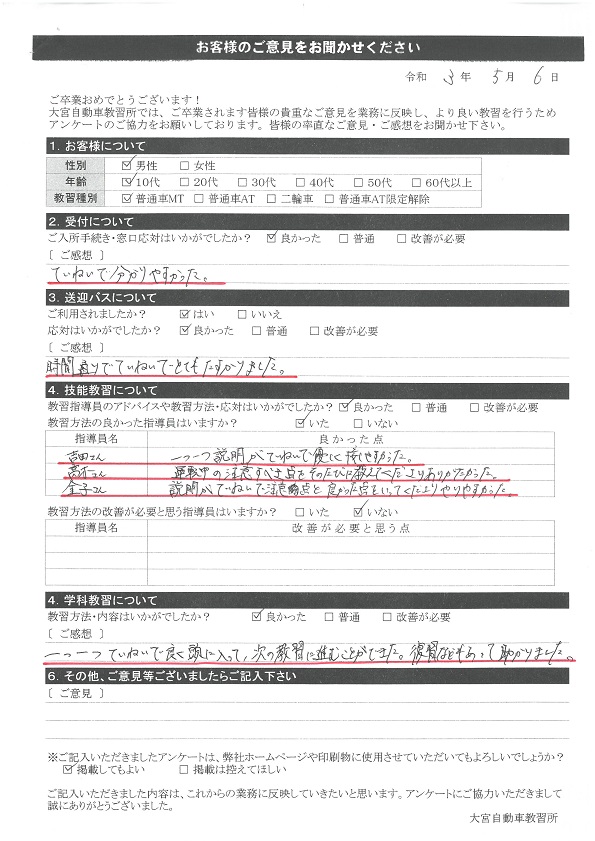 お客様のご意見をお聞かせください
令和 3年 5月 6日
ご卒業おめでとうございます！
大宮自動車教習所では、ご卒業されます皆様の貴重なご意見を業務に反映し、より良い教習を行うため
アンケートのご協力をお願いしております。皆様の率直なご意見・ご感想をお聞かせ下さい。
1. お客様について
性別 ☑男性 □女性
年齢 ☑10代 □20代 □30代 □40代 □50代 □60代以上
教習種別 ☑普通車MT □普通車AT □二輪車 □普通車AT限定解除
2. 受付について
ご入所手続き・窓口応対はいかがでしたか？ ☑良かった □普通 □改善が必要
[ ご感想 ]
ていねいで分かりやすかった。
3. 送迎バスについて
ご利用されましたか？ ☑はい □いいえ
応対はいかがでしたか？ ☑良かった □普通 □改善が必要
[ ご感想 ]
時間通りでていねいでとてもたすかりました。
4. 技能教習について
教習指導員のアドバイスや教習方法・応対はいかがでしたか？ ☑良かった □普通 □改善が必要
教習方法の良かった指導員はいますか？ ☑いた □いない
指導員名 良かった点
吉田さん 一つ一つ説明がていねいで優しく接しやすかった。
高木さん 運転中の注意すべき点をそのたびに教えてくださりありがたかった。
金子さん 説明がていねいで注意点と良かった点をいってくださりやりやすかった。
教習方法の改善が必要と思う指導員はいますか？ □いた ☑いない
指導員名 改善が必要と思う点
4. 学科教習について
教習方法・内容はいかがでしたか？ ☑良かった □普通 □改善が必要
[ ご感想 ]
一つ一つていねいで良く頭に入って、次の教習に進むことができた。復習などもあって助かりました。
6. その他、ご意見等ございましたらご記入下さい
[ ご意見 ]
※ご記入いただきましたアンケートは、弊社ホームページや印刷物に使用させていただいてもよろしいでしょうか？
☑掲載してもよい □掲載は控えてほしい
ご記入いただきました内容は、これからの業務に反映していきたいと思います。アンケートにご協力いただきまして
誠にありがとうございました。
大宮自動車教習所